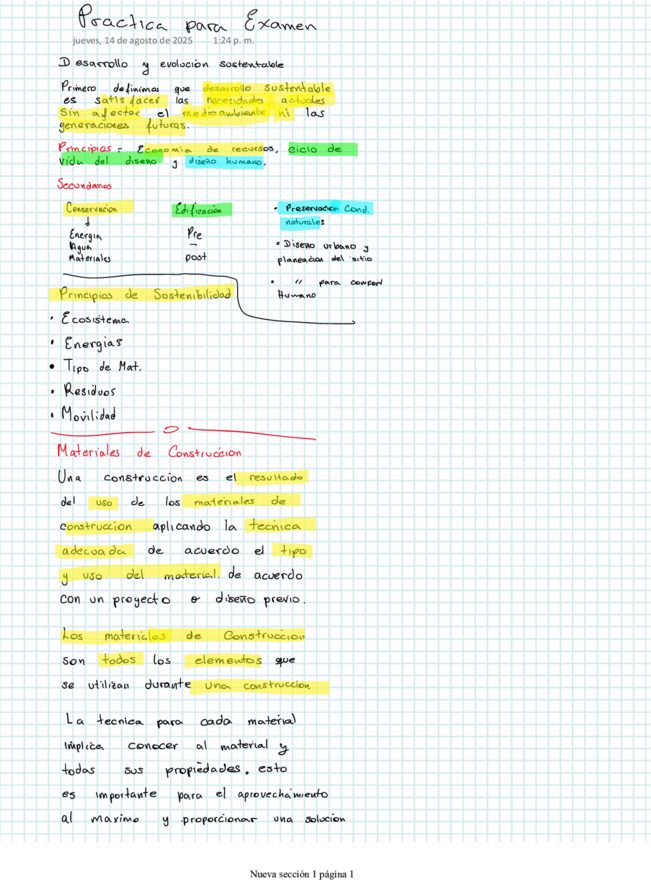 Practica para Examen
jueves, 14 de agosto de 2025 1:24 p. m.
Desarrollo y evolución sostentable
Primero definimos que desarrollo sustentable
es satisfacer las necesidades actuales
Sin afectar el medio ambiente ni las
generaciones futuras.
Principios = Economia de recursos, ciclo de
vida del diseño y diseño humano.
Secundarios
Conservacion
Energia
Agua
Materiales
Edificación
Pre
post
• Preservación Cond.
naturales
• Diseño urbano y
planeacion del sitio
• " para confort
Humano
Principios de Sostenibilidad
• Ecosistema
• Energias
• Tipo de Mat.
• Residuos
• Movilidad
Materiales de Construccion
Una construccion es el resultado
del uso de los materiales de
construccion aplicando la tecnica
adecuada de acuerdo el tipo
y uso del material. de acuerdo
con un proyecto o diseño previo.
Los materiales de Construccion
son todos los elementos que
se utilizan durante una construccion
La tecnica para cada material
implica conocer al material y
todas sus propiedades. esto
es importante para el aprovechamiento
al maximo y proporcionar una solucion
Nueva sección 1 página 1